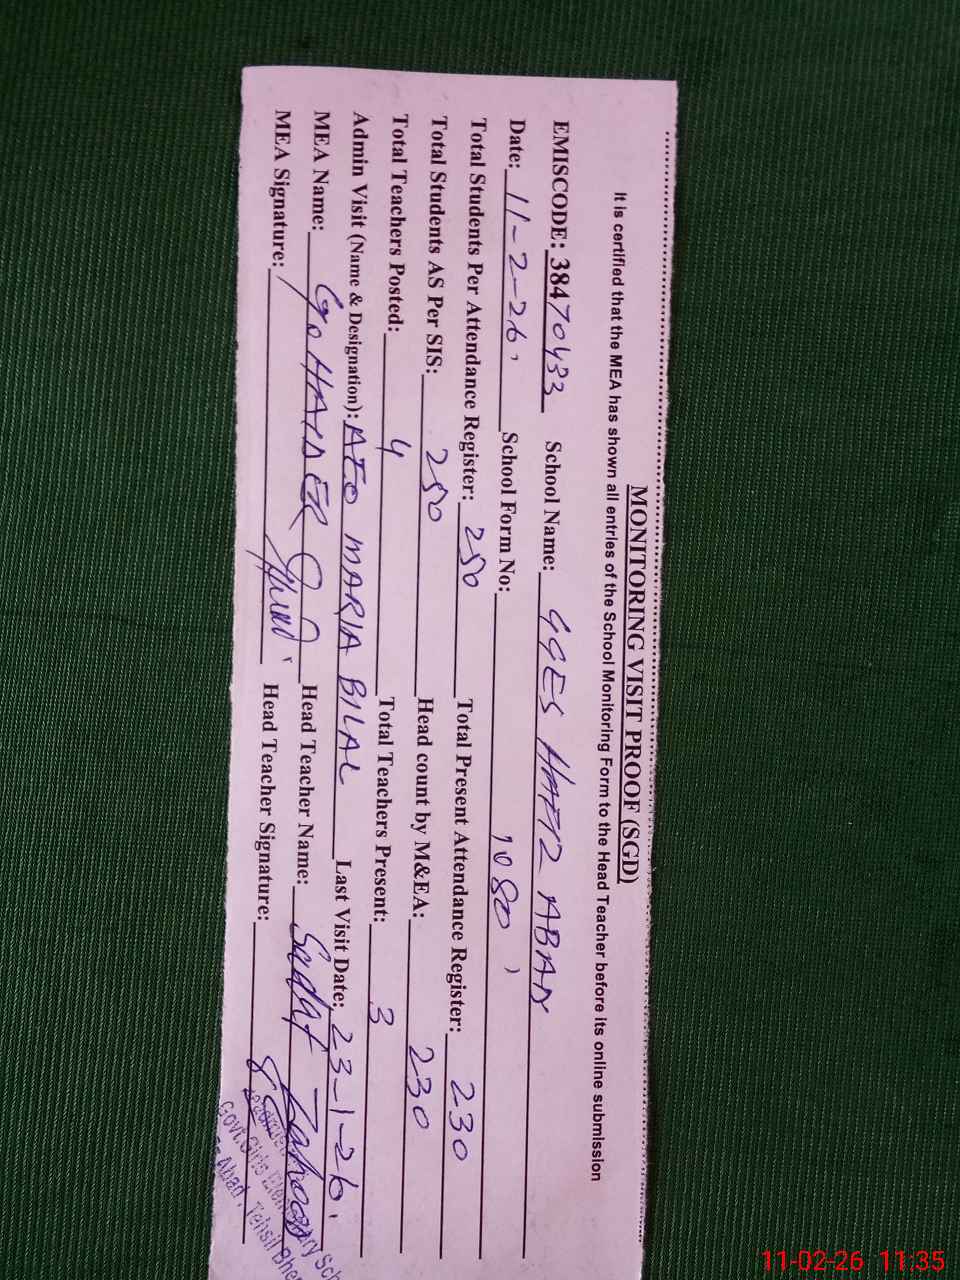 MONITORING VISIT PROOF (SGD)
It is certified that the MEA has shown all entries of the School Monitoring Form to the Head Teacher before its online submission
EMISCODE: 38470433 School Name: GGES HAFIZ ABAD
Date: 11-2-26. School Form No: 1080
Total Students Per Attendance Register: 250 Total Present Attendance Register: 230
Total Students AS Per SIS: 250 Head count by M&EA: 230
Total Teachers Posted: 4 Total Teachers Present: 3
Admin Visit (Name & Designation): AEO MARIA BILAL Last Visit Date: 23-1-26.
MEA Name: HAIDER Head Teacher Name:
MEA Signature: Head Teacher Signature:
Govt. Girls Elementary Sch
Abad, Tehsil Bhe
11-02-26 11:35